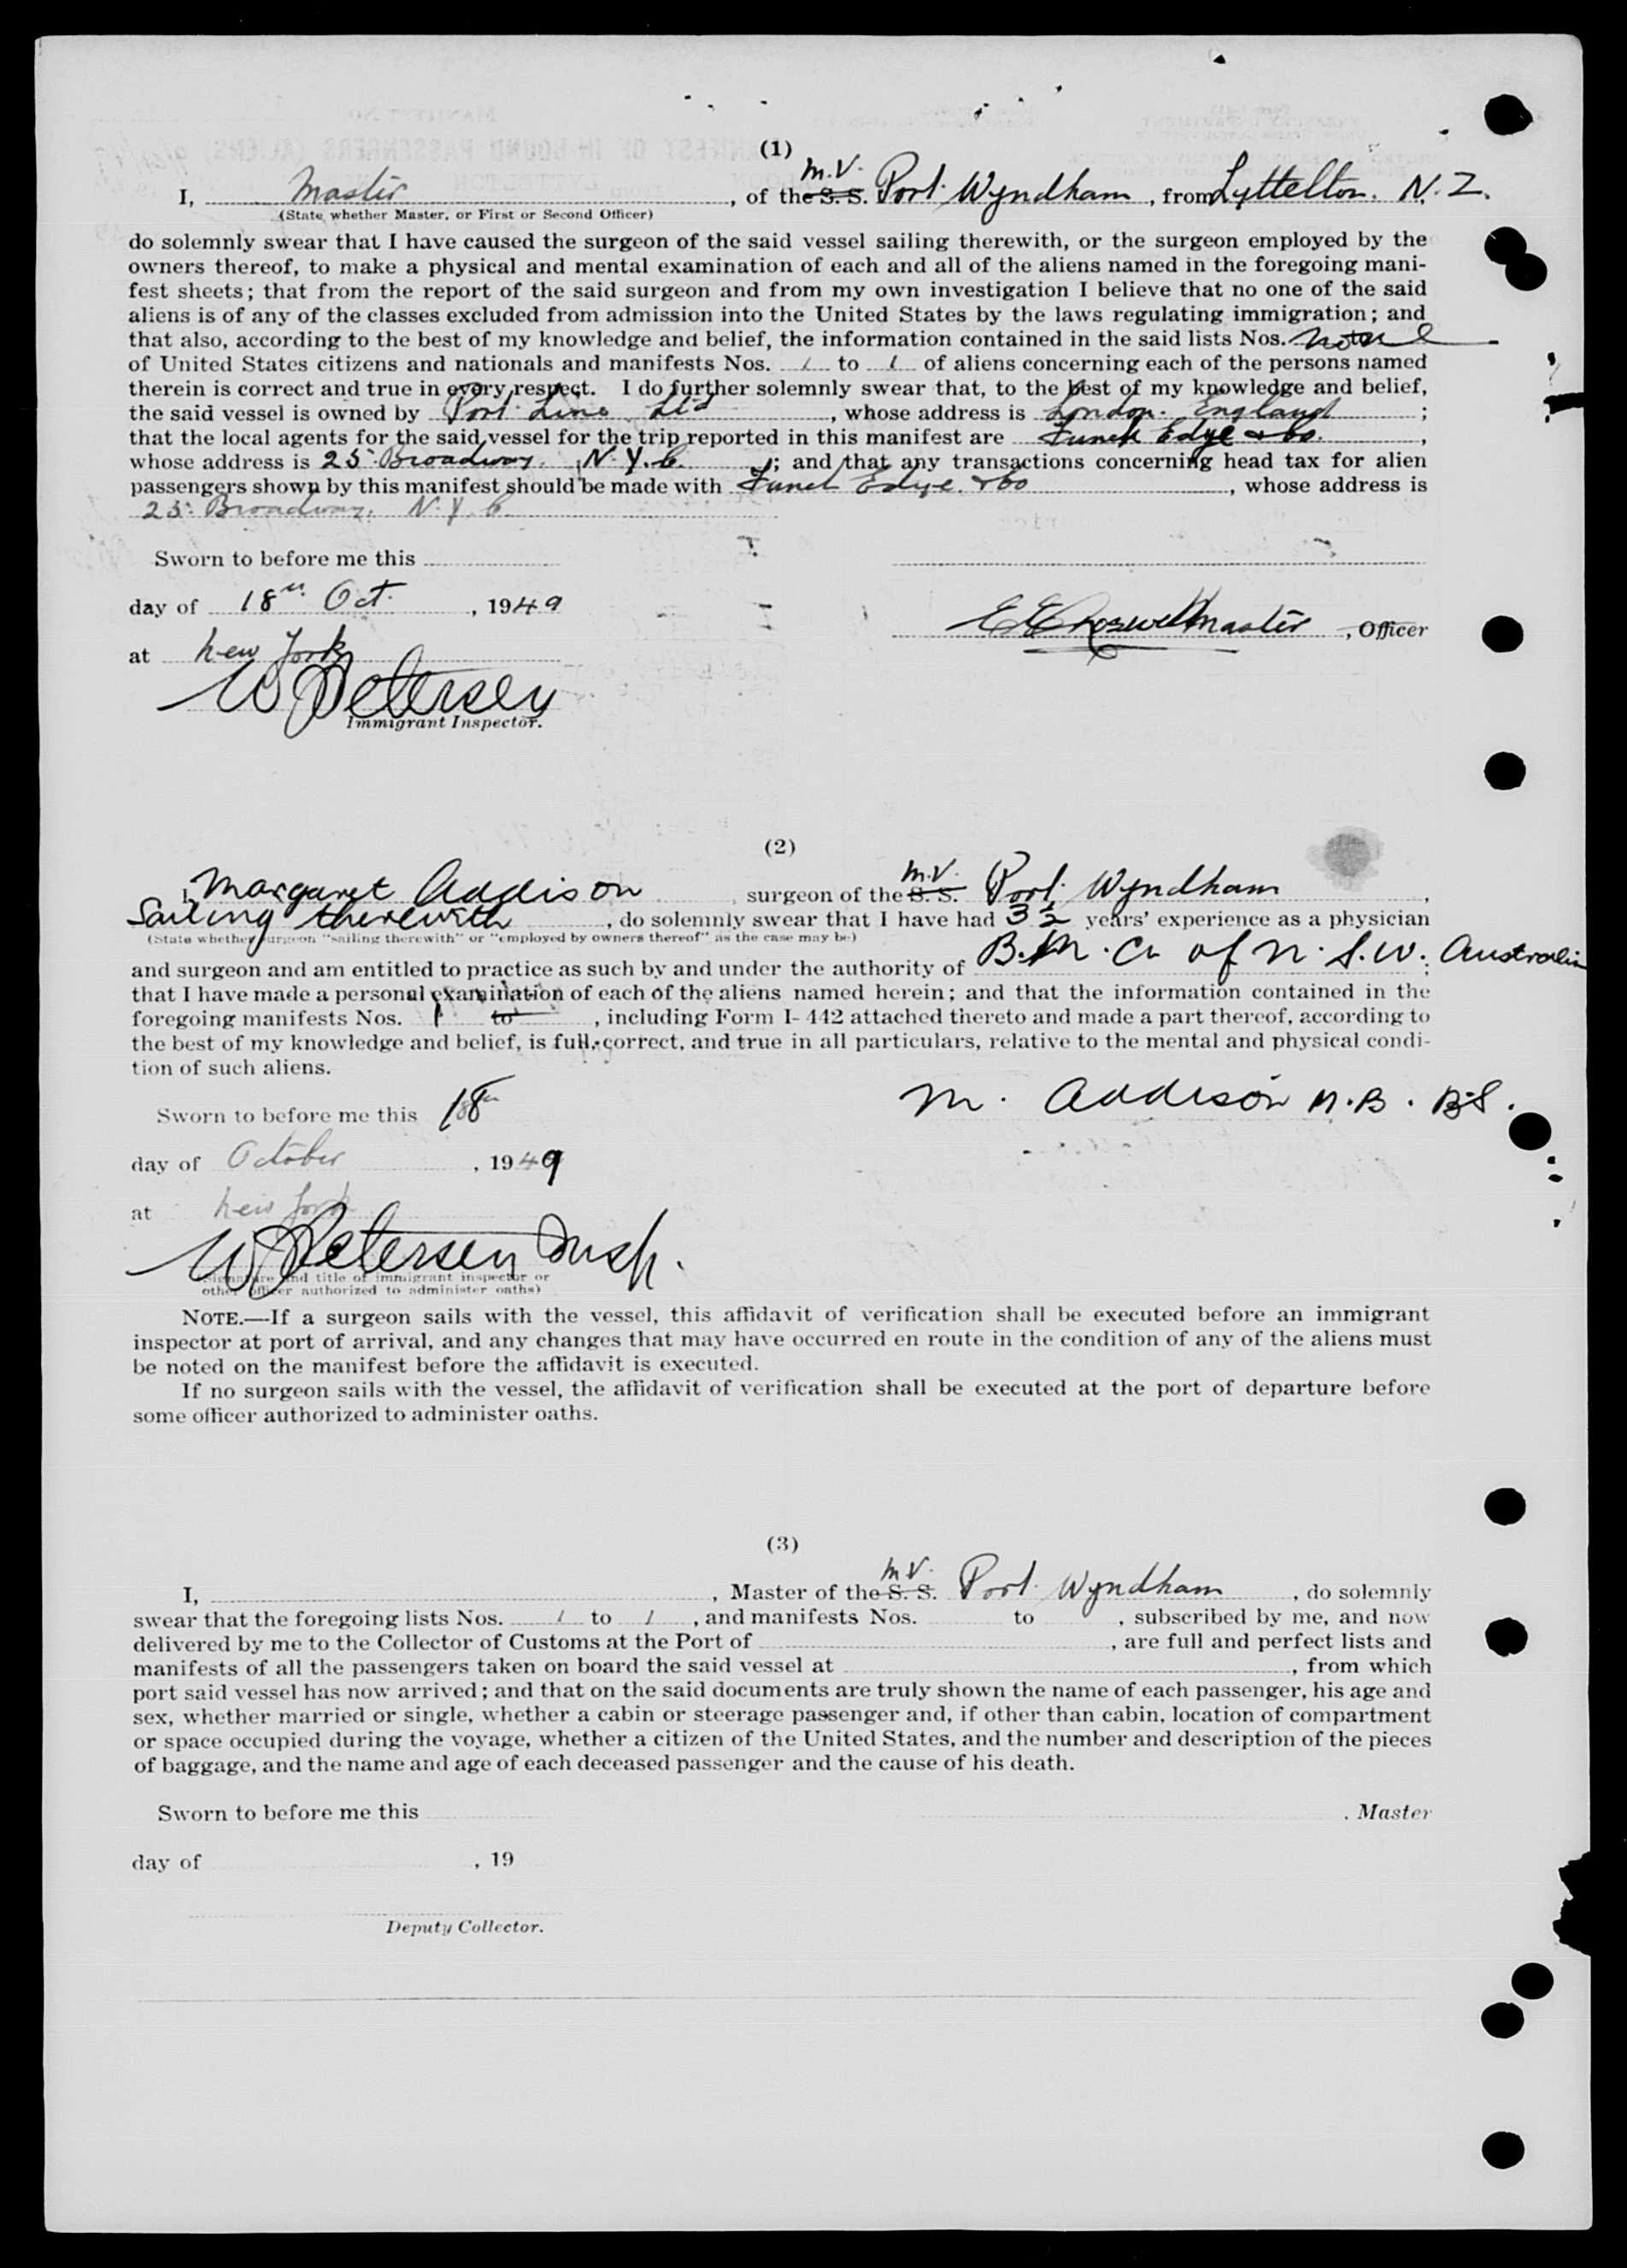 (1)
I, Master, of the S. S. M.V. Port Wyndham, from Lyttelton. N. Z.
(State whether Master, or First or Second Officer)
do solemnly swear that I have caused the surgeon of the said vessel sailing therewith, or the surgeon employed by the
owners thereof, to make a physical and mental examination of each and all of the aliens named in the foregoing mani-
fest sheets; that from the report of the said surgeon and from my own investigation I believe that no one of the said
aliens is of any of the classes excluded from admission into the United States by the laws regulating immigration; and
that also, according to the best of my knowledge and belief, the information contained in the said lists Nos.
of United States citizens and nationals and manifests Nos. 1 to 1 of aliens concerning each of the persons named
therein is correct and true in every respect. I do further solemnly swear that, to the best of my knowledge and belief,
the said vessel is owned by Port Line Ltd, whose address is London. England;
that the local agents for the said vessel for the trip reported in this manifest are Funch Edye & Co.,
whose address is 25 Broadway. N.Y.C.; and that any transactions concerning head tax for alien
passengers shown by this manifest should be made with Funch Edye. & Co, whose address is
25. Broadway. N.Y.C.
Sworn to before me this
day of 18th Oct., 1949
Master, Officer
at New York
W Petersen
Immigrant Inspector.
(2)
I, Margaret Addison, surgeon of the S. S. M.V. Port Wyndham,
Sailing therewith, do solemnly swear that I have had 3 1/2 years' experience as a physician
(State whether surgeon "sailing therewith" or "employed by owners thereof" as the case may be)
and surgeon and am entitled to practice as such by and under the authority of B.M.A. of N.S.W. Australia;
that I have made a personal examination of each of the aliens named herein; and that the information contained in the
foregoing manifests Nos. 1 to, including Form I-442 attached thereto and made a part thereof, according to
the best of my knowledge and belief, is full, correct, and true in all particulars, relative to the mental and physical condi-
tion of such aliens.
M. Addison M.B. B.S.
Sworn to before me this 18th
day of October, 1949
at New York
W Petersen Insp.
(Signature and title of immigrant inspector or
other officer authorized to administer oaths)
NOTE.—If a surgeon sails with the vessel, this affidavit of verification shall be executed before an immigrant
inspector at port of arrival, and any changes that may have occurred en route in the condition of any of the aliens must
be noted on the manifest before the affidavit is executed.
If no surgeon sails with the vessel, the affidavit of verification shall be executed at the port of departure before
some officer authorized to administer oaths.
(3)
I, , Master of the S. S. M.V. Port Wyndham, do solemnly
swear that the foregoing lists Nos. 1 to 1, and manifests Nos. to , subscribed by me, and now
delivered by me to the Collector of Customs at the Port of , are full and perfect lists and
manifests of all the passengers taken on board the said vessel at , from which
port said vessel has now arrived; and that on the said documents are truly shown the name of each passenger, his age and
sex, whether married or single, whether a cabin or steerage passenger and, if other than cabin, location of compartment
or space occupied during the voyage, whether a citizen of the United States, and the number and description of the pieces
of baggage, and the name and age of each deceased passenger and the cause of his death.
Sworn to before me this
, Master
day of , 19
Deputy Collector.